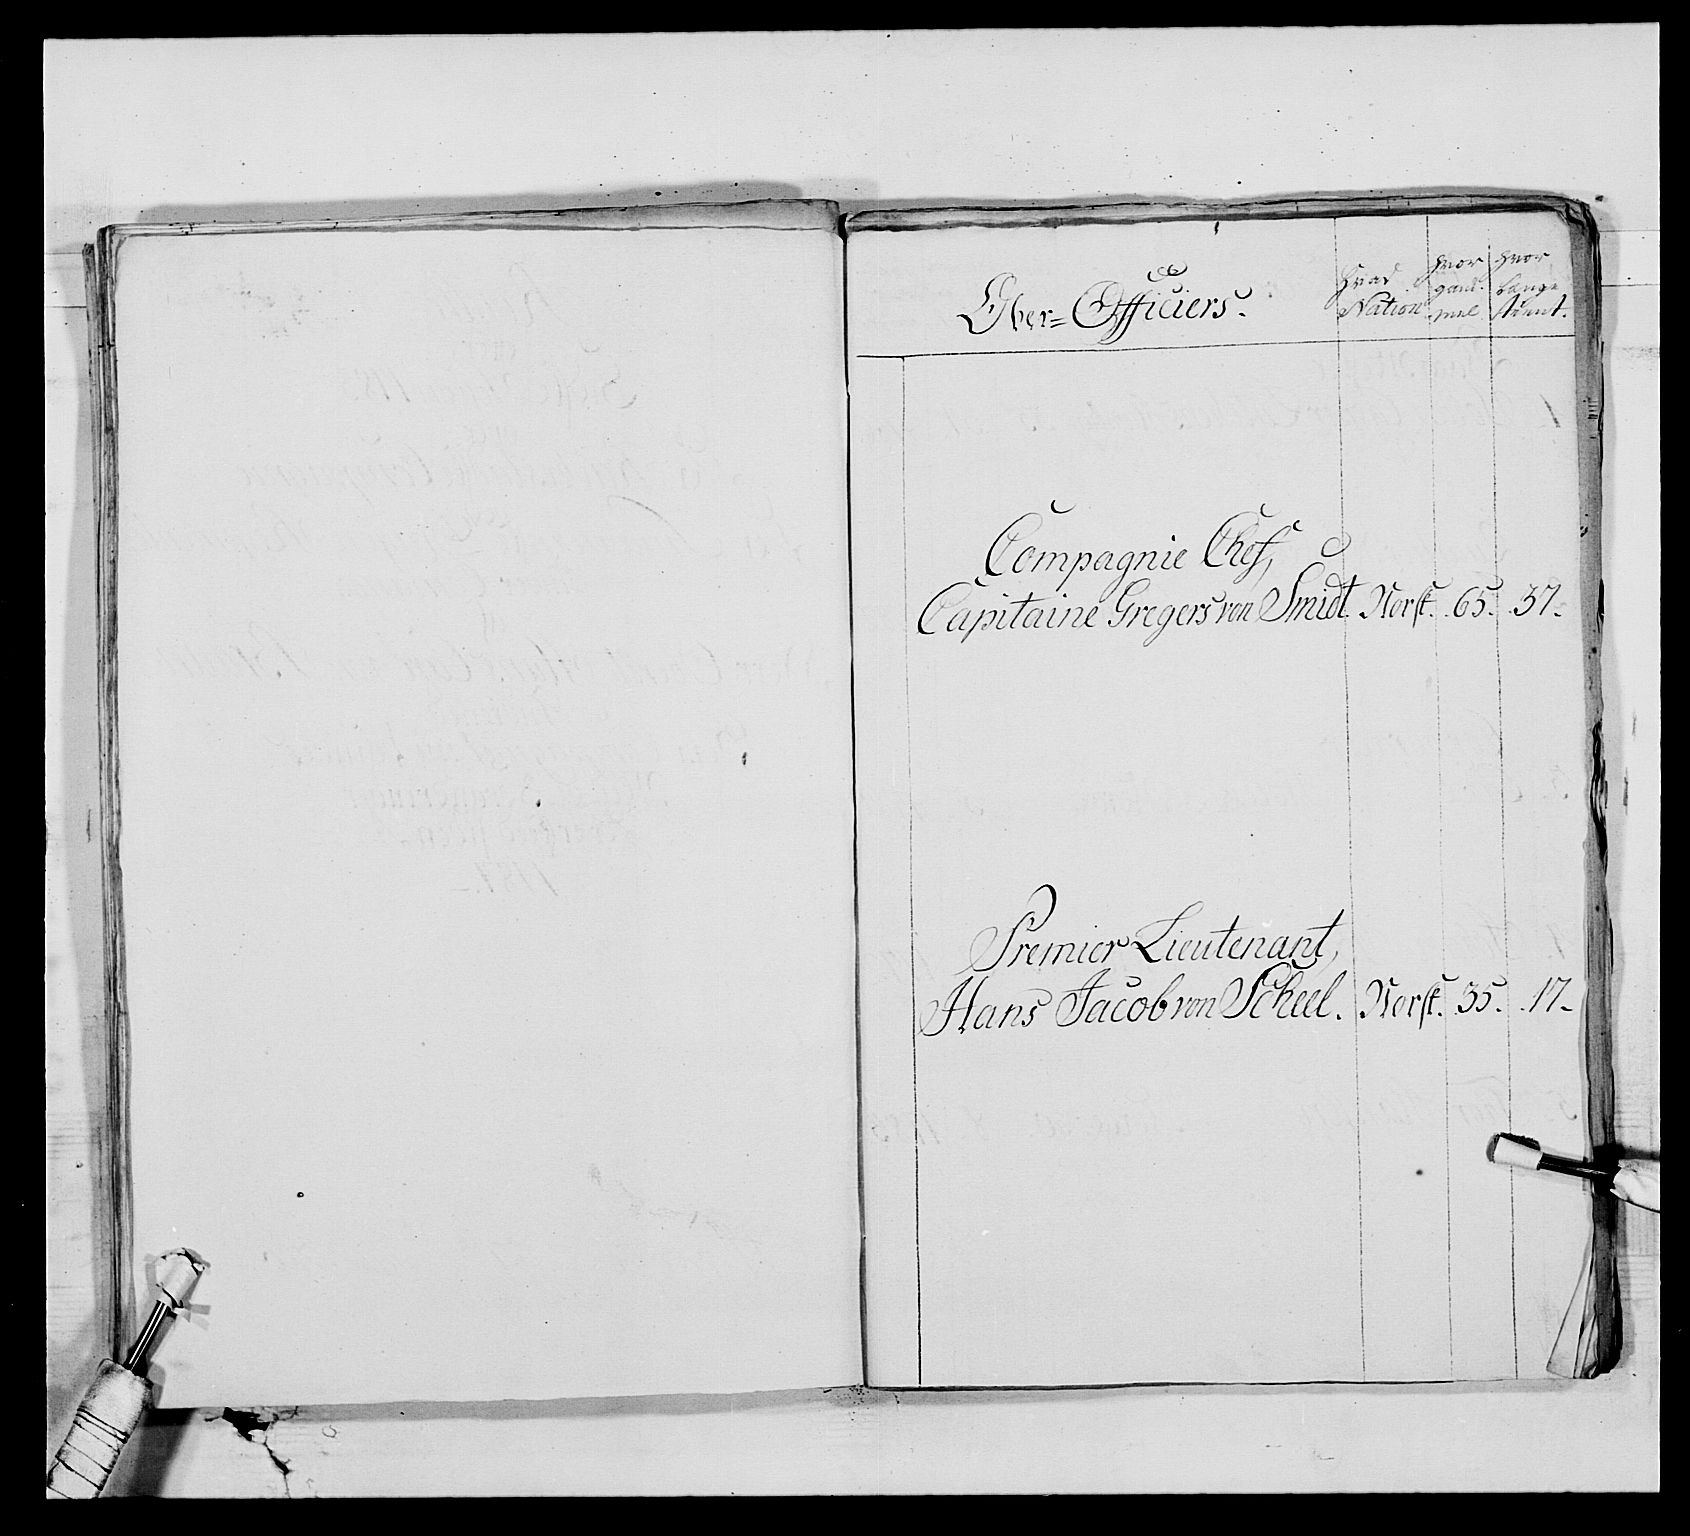 Ober=Officiers.
Hvad
Nation
hvor
gam¬
mel
hvor
længe
tient.
Compagnie Chef,
Capitaine Gregers von Smidt. Norsk. 65. 37.
Premier Lieutenant,
Hans Jacob von Scheel. Norsk. 35. 17.